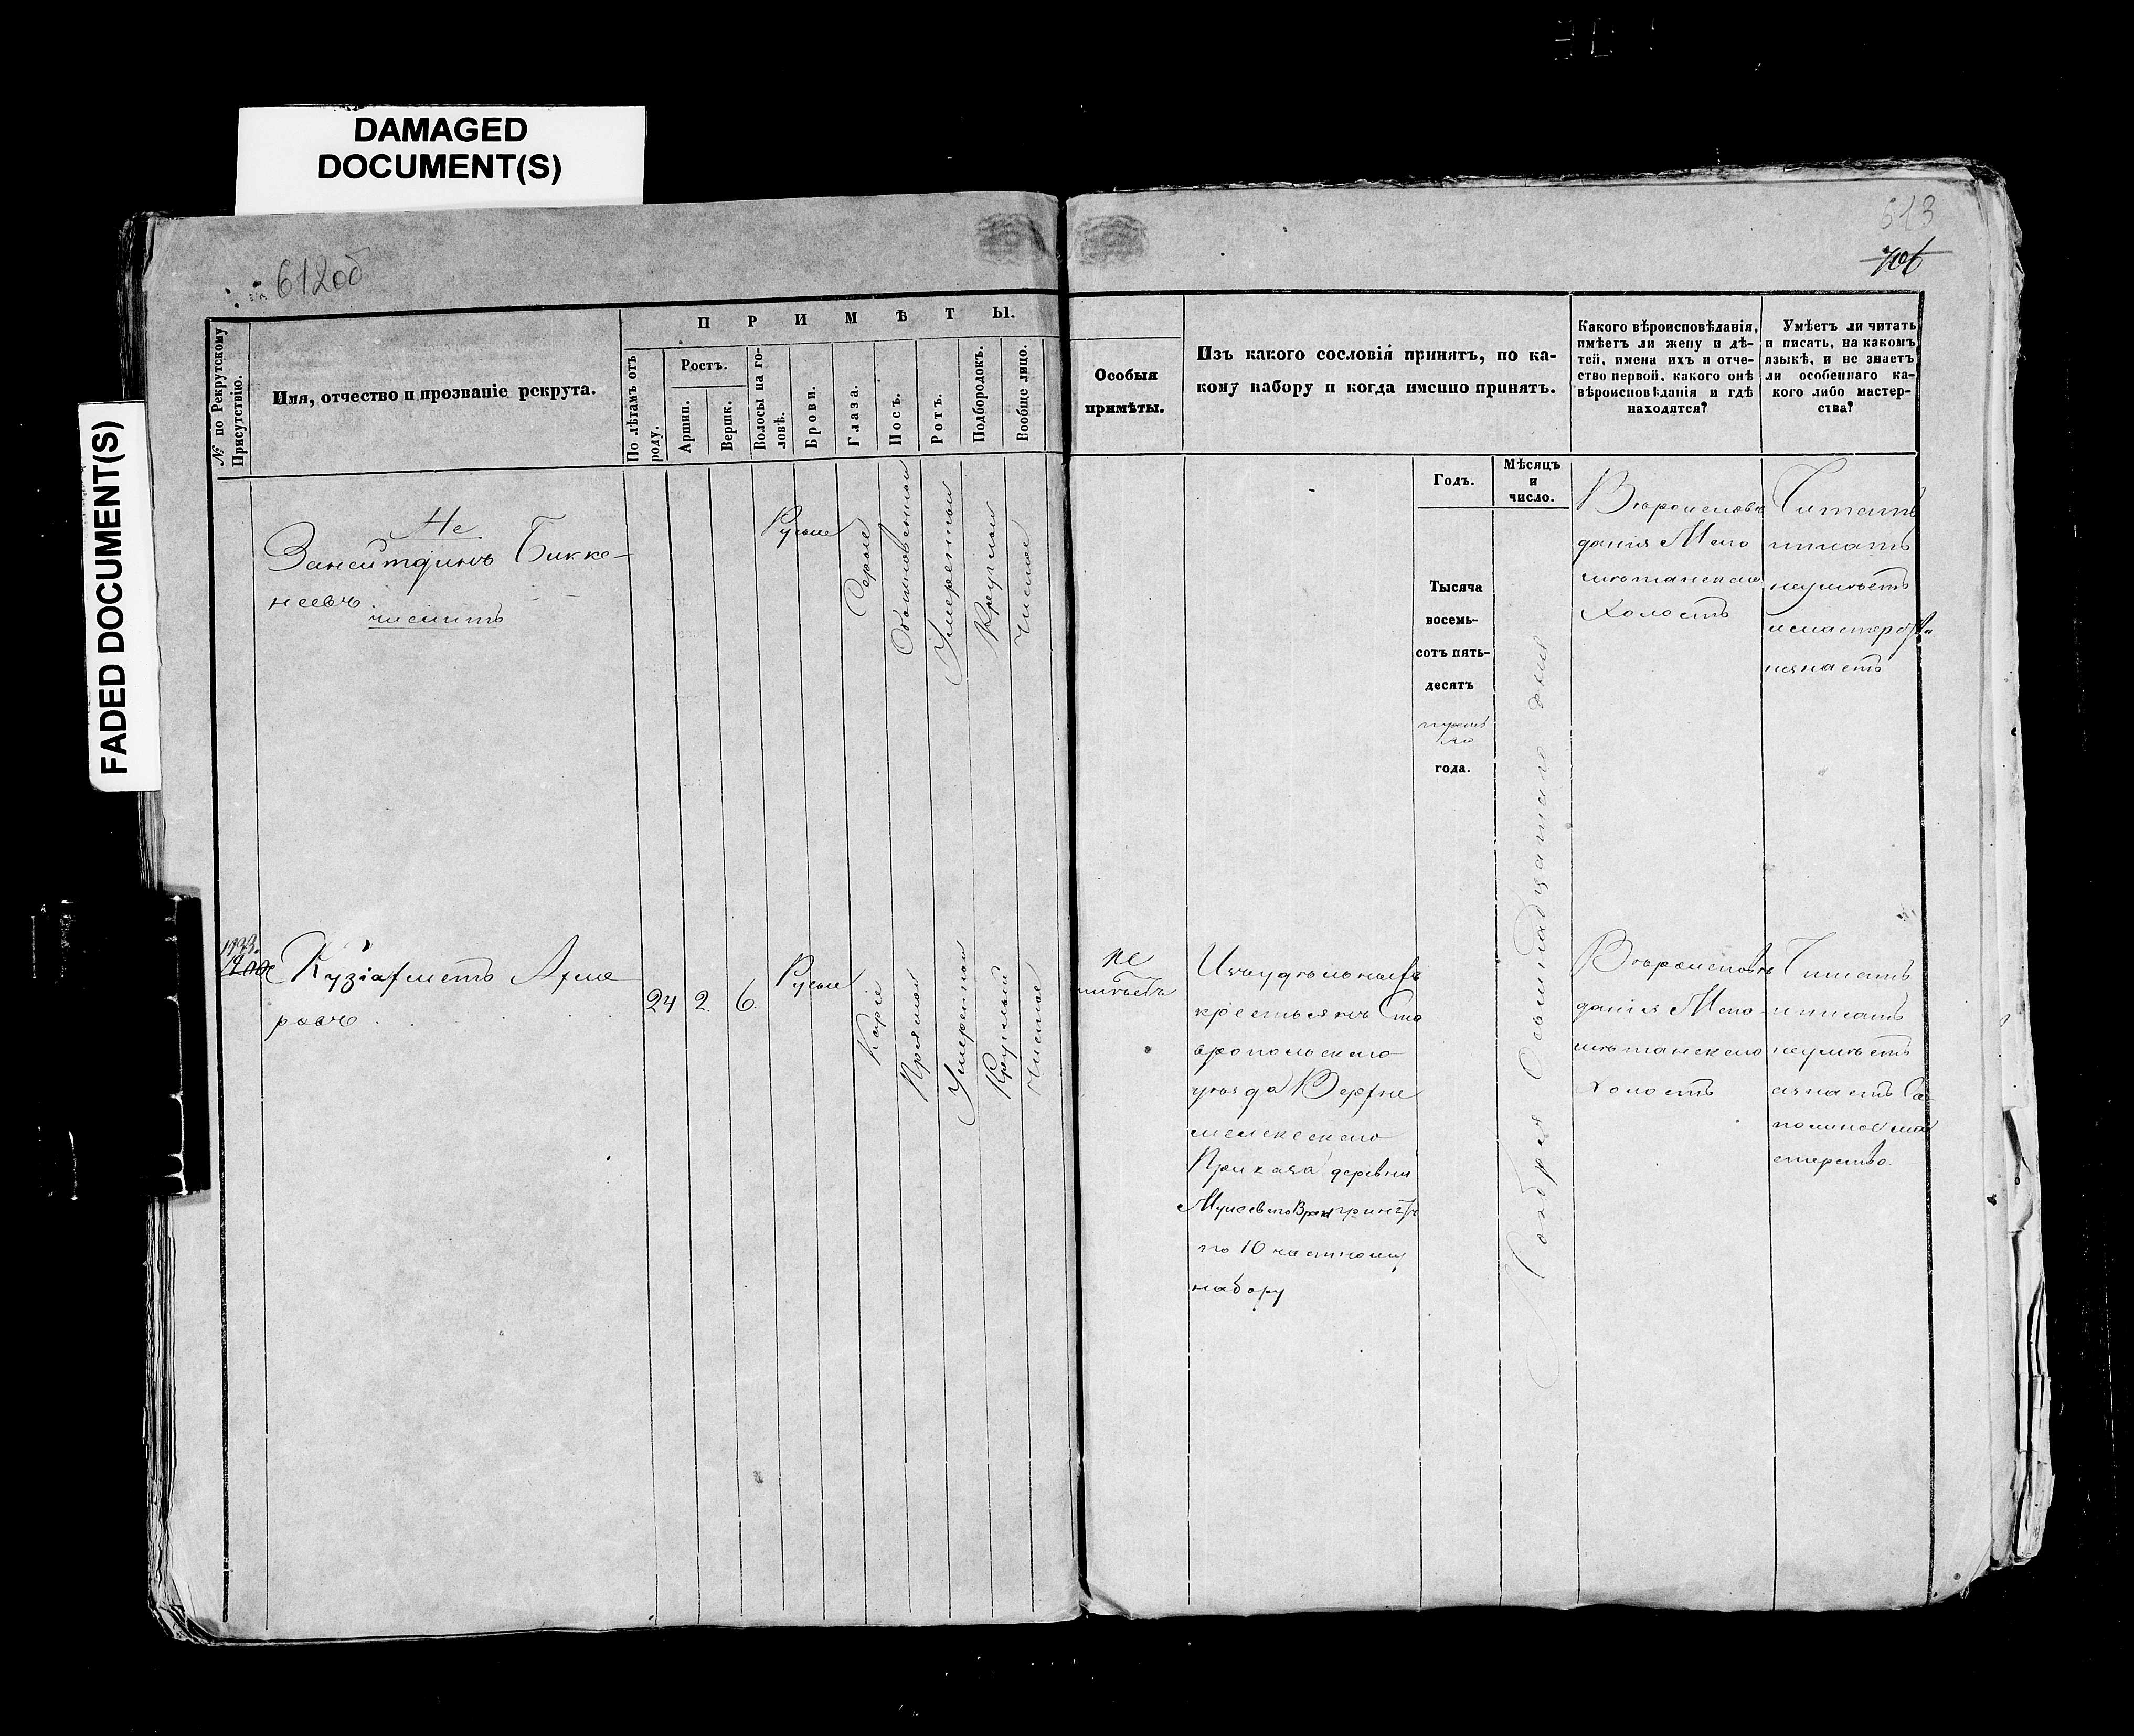 DAMAGED
DOCUMENT(S)
FADED DOCUMENT(S)
612об
613
№ по Рекрутскому
Присутствію.
Имя, отчество и прозваніе рекрута.
ПРИМѢТЫ.
По лѣтамъ отъ
роду.
Ростъ.
Аршин.
Вершк.
Волосы на го-
ловѣ.
Брови.
Глаза.
Носъ.
Ротъ.
Подбородокъ.
Вообще лицо.
Особыя
примѣты.
Изъ какого сословія принятъ, по ка-
кому набору и когда именно принятъ.
Какого вѣроисповѣданія,
имѣетъ ли жену и дѣ-
тей, имена ихъ и отче-
ство первой, какого онѣ
вѣроисповѣданія и гдѣ
находятся?
Умѣетъ ли читать
и писать, на какомъ
языкѣ, и не знаетъ
ли особеннаго ка-
кого либо мастер-
ства?
Годъ.
Мѣсяцъ
и
число.
Не
Занейтдинъ Бикке-
неевъ
числитъ
Русые
Серые
Обыкновенной
Умеренной
Круглой
Чистое
Тысяча
восемь-
сотъ пять-
десятъ
года.
Ноября Осьмнадцатаго дня
Вѣроисповѣ
данія Маго
мѣтанскаго
Холостъ
Читать
писать
неумѣетъ
и мастерства
незнаетъ
1733.
Кузіахметъ Ахме
ровъ
24 2. 6.
Русые
Каріе
Прямой
Умеренной
Круглый
Чистое
не
имѣетъ
Изъ удѣльныхъ
крестьянъ Ста
вропольскаго
уѣзда Верхне
мелекескаго
Приказа деревни
по 10 частному
набору
Вѣроисповѣ
данія Маго
мѣтанскаго
Холостъ
Читать
и писать
неумѣетъ
а знаетъ Са
пожное ма
стерство.